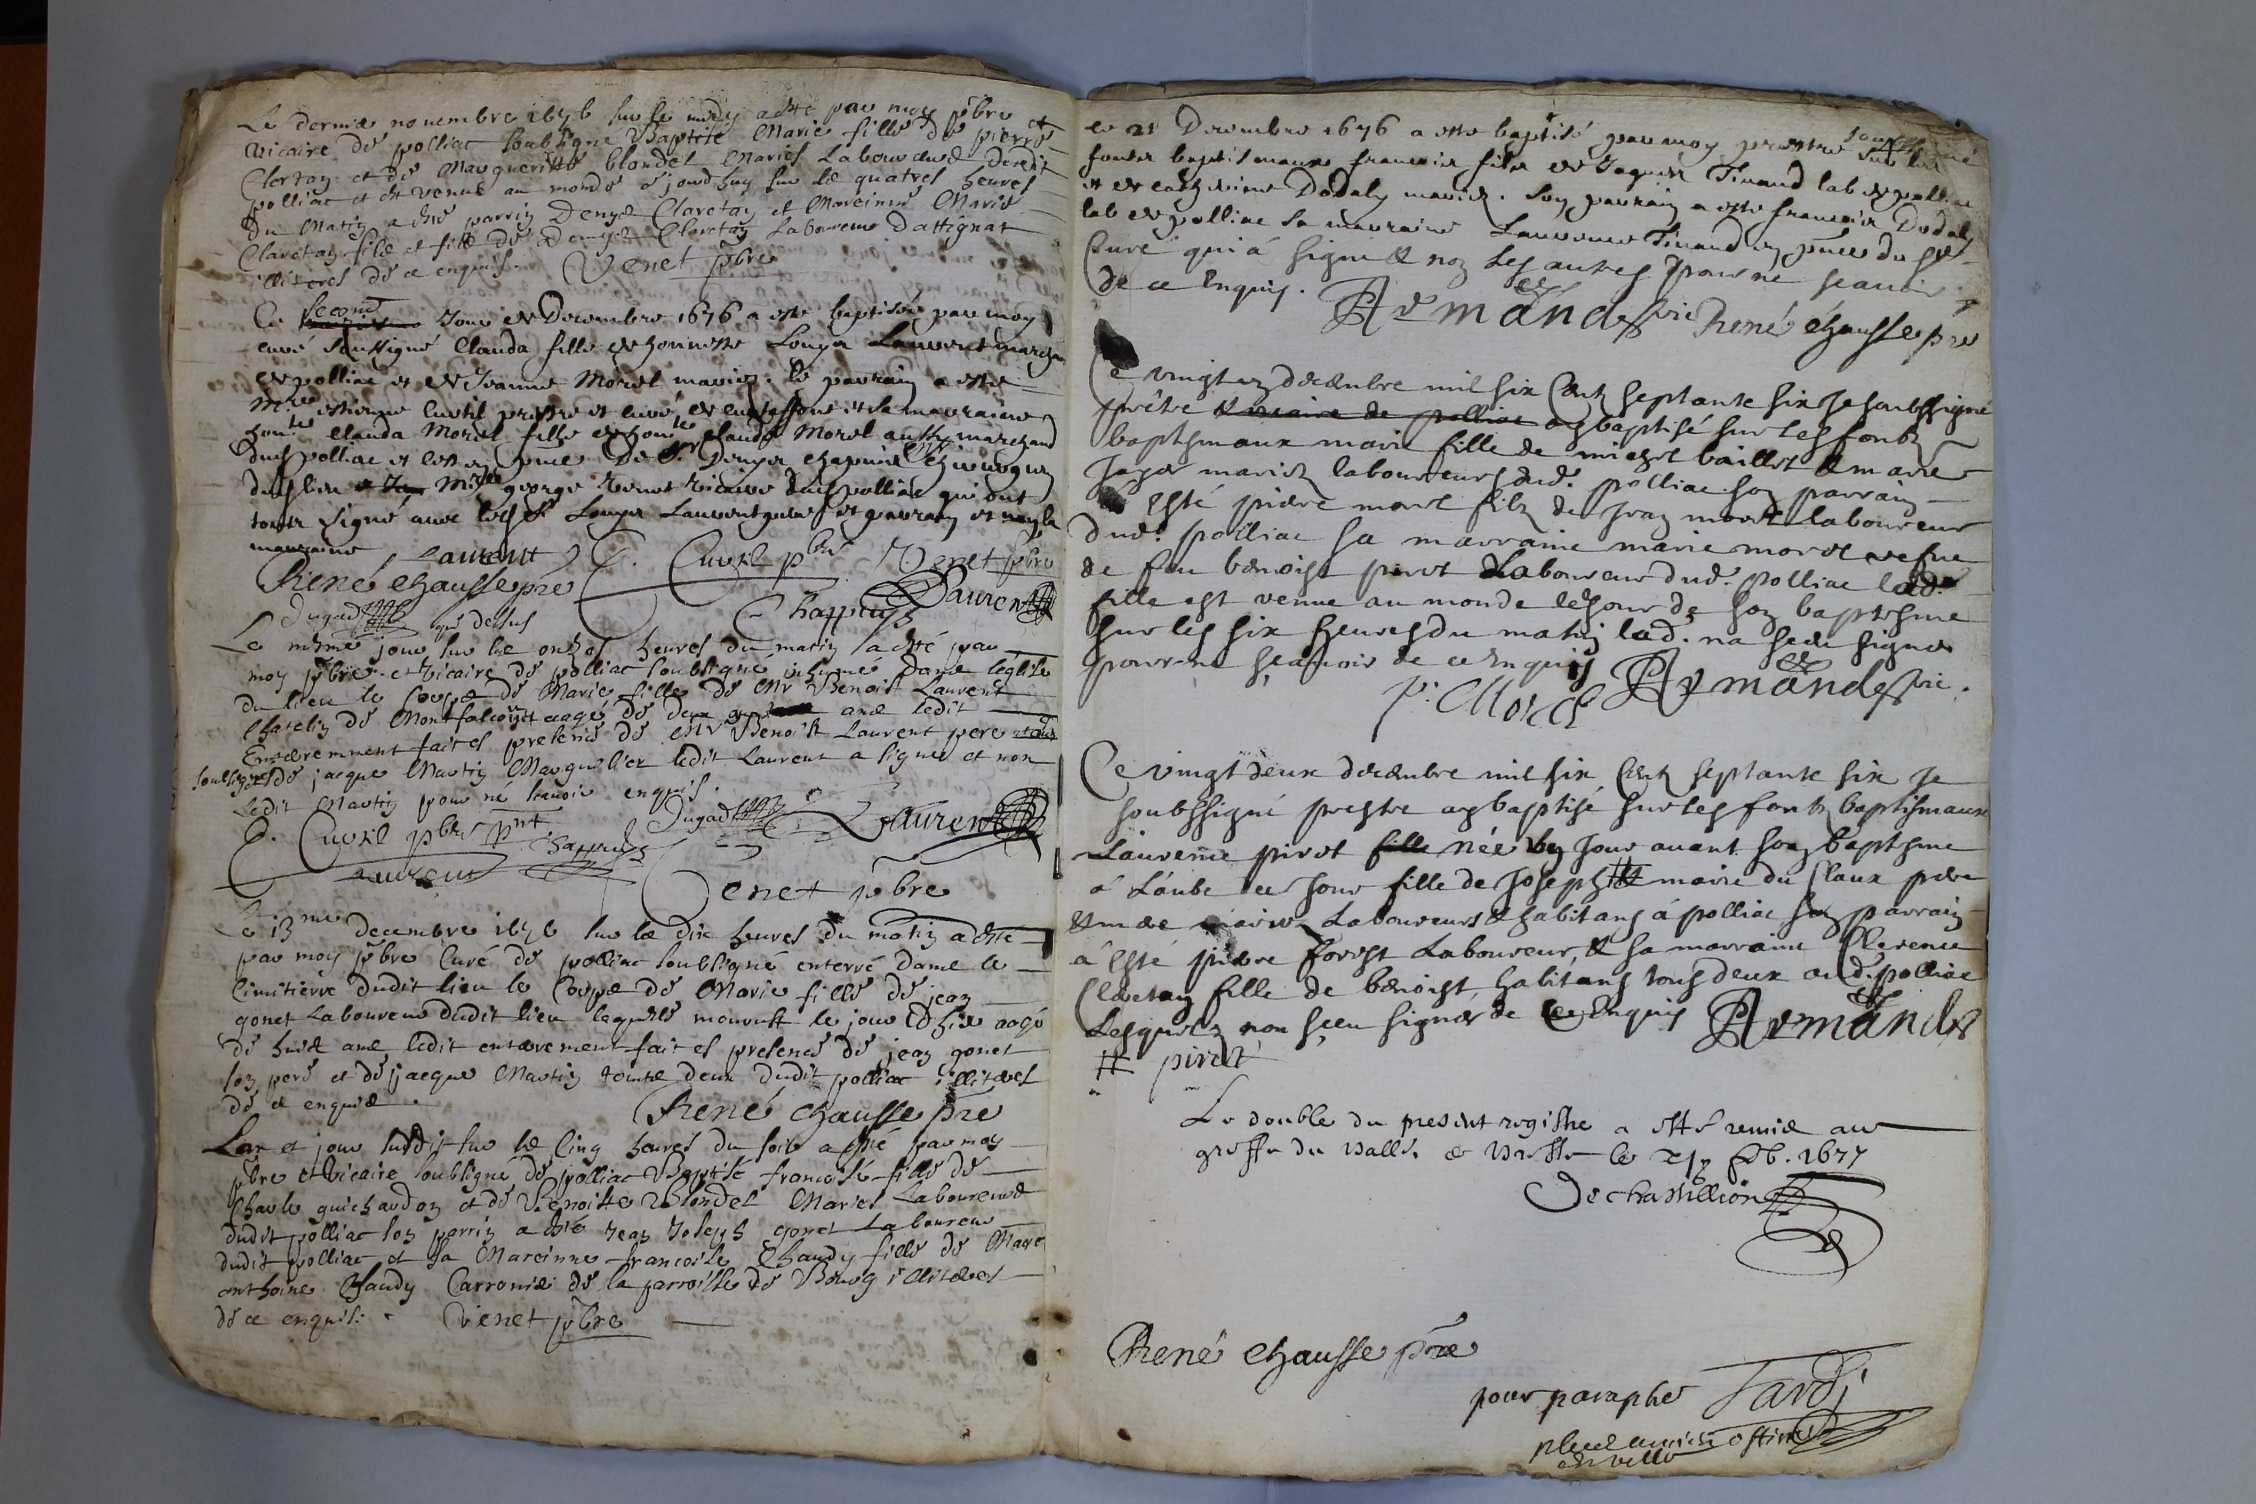 Le dernie novembre 1676 sur le midy a esté par moy pbre et
vicaire de polliac soubsigne Baptisé Marie fille de pierre
Claretan et de Margueritte blondel Mariés Laboureurs dudit
polliac et est venue au monde ajourdhuy sur les quatres heures
du Matin a esté parrin Denys Claretan et Mareinne Marie
Claretan filz et fille de Denys Claretan Laboureur dattignat
illiteres de ce enquis. Venet pbre
Ce second Jour de Decembre 1676 a este baptisée par moy
curé soussigné Clauda fille de honneste Louys Laurent marchan
de polliac et de Jeanne Morel mariez. le parrain a este
Mre estienne Cuvil prestre et curé de et sa marraine
honte Clauda Morel fille de honte Claude Morel aussy marchand
dud polliac et les en pnce De Sr Denys chapuis Chirurgien
dud lieu Mre george Venet Vicaire dud polliac qui ont
touts signé avec led Sr Louys Laurent pere et parrain et non la
marraine Laurent
E. Cuvil pbre Venet pbre
René chausse pre Laurent
Dugad qué desus Chappuys
Le mesme jour sur les onzes heures du matin a esté par
moy pbre et vicaire de polliac soubsigné inhumé dans leglise
du lieu le corps de Marie fille de Mr Benoist Laurent
Chatelin de Montfalcon aagé de deux ans ledit
Enterremment fait es presence de Mr Benoist Laurent pere
soubsignes et de jacque Martin Marguelier ledit Laurent a signer et non
Ledit Martin pour né scavoir enquis.
E. Cuvil pbre pnt. Chappuys Dugad Laurent
Laurent
Venet pbre
Le 13me decembre 1676 sur les dix heures du matin a esté
par moy pbre Curé de polliac soubsigné enterré dans le
Cimitierre dudit lieu le Corps de Marie fille de jean
gonet Laboureur dudit lieu laquelle mourust le jour dhier aagé
de huict ans ledit enterrement fait es presence de jean gonet
son pere et de jacque Martin touts deux dudit polliac illiteres
de ce enquis. René chausse pre
Lan et jour susdit sur les Cinq heures du soir a esté par moy
pbre et vicaire soubsigné de polliac Baptisé francoise fille de
Charle guichardon et de Benoitte Blondel Mariés Laboureurs
dudit polliac son parrin a esté Jean Joseph gonet Laboureur
dudit polliac et sa Mareinne francoise Chaudy fille de Marc
anthoine Chaudy Carronié de la parroisse de Bourg illiteres
de ce enquis. Venet pbre
Ce 21 Decembre 1676 a este baptisé par moy prestre soussigné sur les
fonts baptismaux francois filz de Jaques Tinaud lab de polliac
et de Dodaly mariez. Son parrain a este francois Dodaly
lab de polliac sa marraine Laurence Tinaud en pnce du Sr
Curé qui à signé & non les autres pour ne scavoir
de ce Enquis. Armand vic René chausse pre
Ce vingt un decembre mil six Centz septante six Je soubssigné
prêtre & vicaire de polliac ay baptisé sur les fontz
baptismaux marie fille de michel baillet & marie
Jayr mariez laboureurs dud. polliac. son parrain
à Esté pierre morel filz de Jean morel laboureur
dud. polliac sa marraine marie morel vefue
de feu benoist pirot Laboureur dud. polliac lad.
fille est venue au monde le Jour de son baptesme
sur les six heures du matin lad. na sceu signer
pour ne sçauoir de ce Enquis
p: Morel Armand vic.
Ce vingt deux decembre mil six Centz septante six Je
soubssigné prestre ay baptisé sur les fontz baptismaux
Laurence pirot fille née un Jour avant son baptesme
à L'aube du Jour fille de Joseph # & marie du Claux pere
& mere mariez Laboureurs & habitans à polliac son parrain
à Esté pierre forest Laboureur, & sa marraine Clerence
Claretan fille de benoist habitans tous deux aud. polliac
Lesquelz non sceu signer de ce Enquis Armand
# pirot
Le double du present registre a este remis au
greffe du Balle. de Bresse le fb. 1677
De chastillion
René chausse pre
pour paraphe Tardy